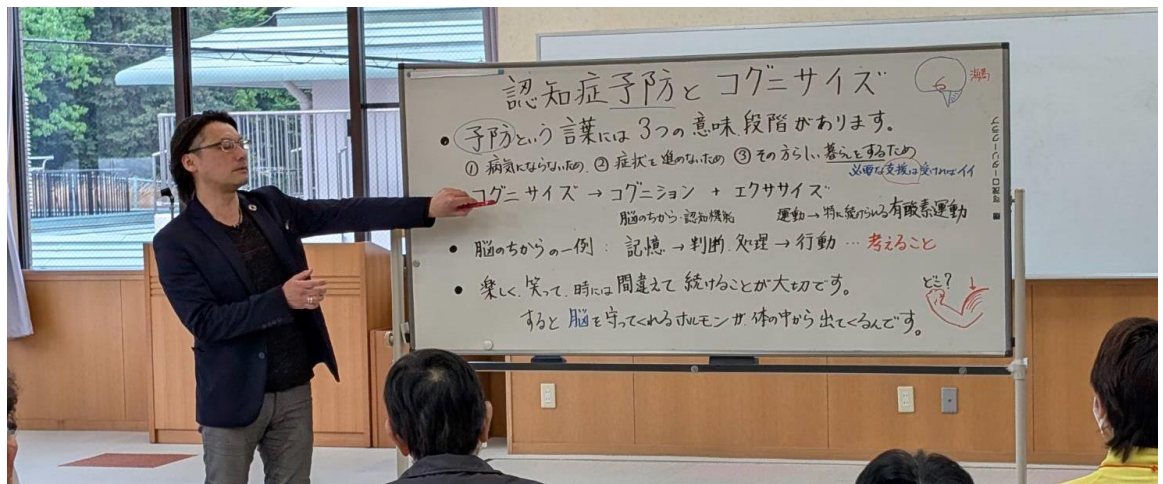 認知症予防とコグニサイズ
海馬
• 予防という言葉には3つの意味、段階があります。
① 病気にならないため、② 症状を進めないため ③ その方らしい暮らしをするため
必要な支援は受ければイイ
コグニサイズ → コグニション + エクササイズ
脳のちから・認知機能 運動 → 特に続けられる有酸素運動
• 脳のちからの一例: 記憶 → 判断、処理 → 行動 … 考えること
• 楽しく、笑って、時には間違えて続けることが大切です。
どこ?
すると脳を守ってくれるホルモンが、体の中から出てくるんです。
ロータリークラブ